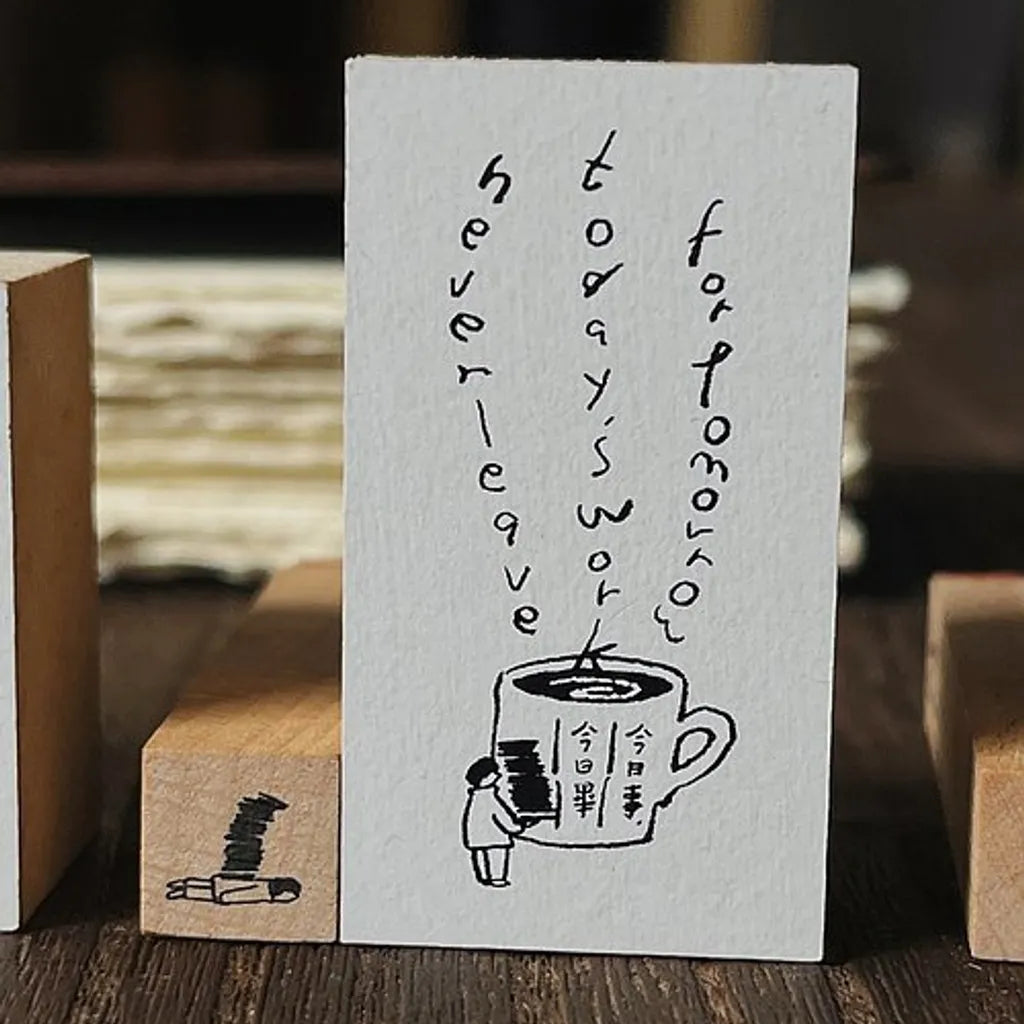 never leave
today's work
for tomorrow
今日事
今日畢